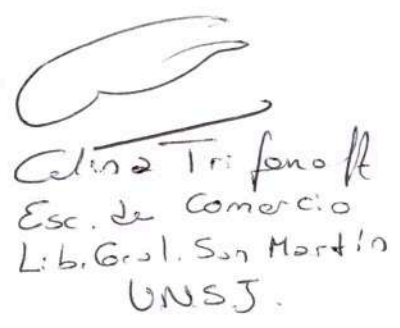 Celina Trifonoff
Esc. de Comercio
Lib. Gral. San Martín
UNSJ.